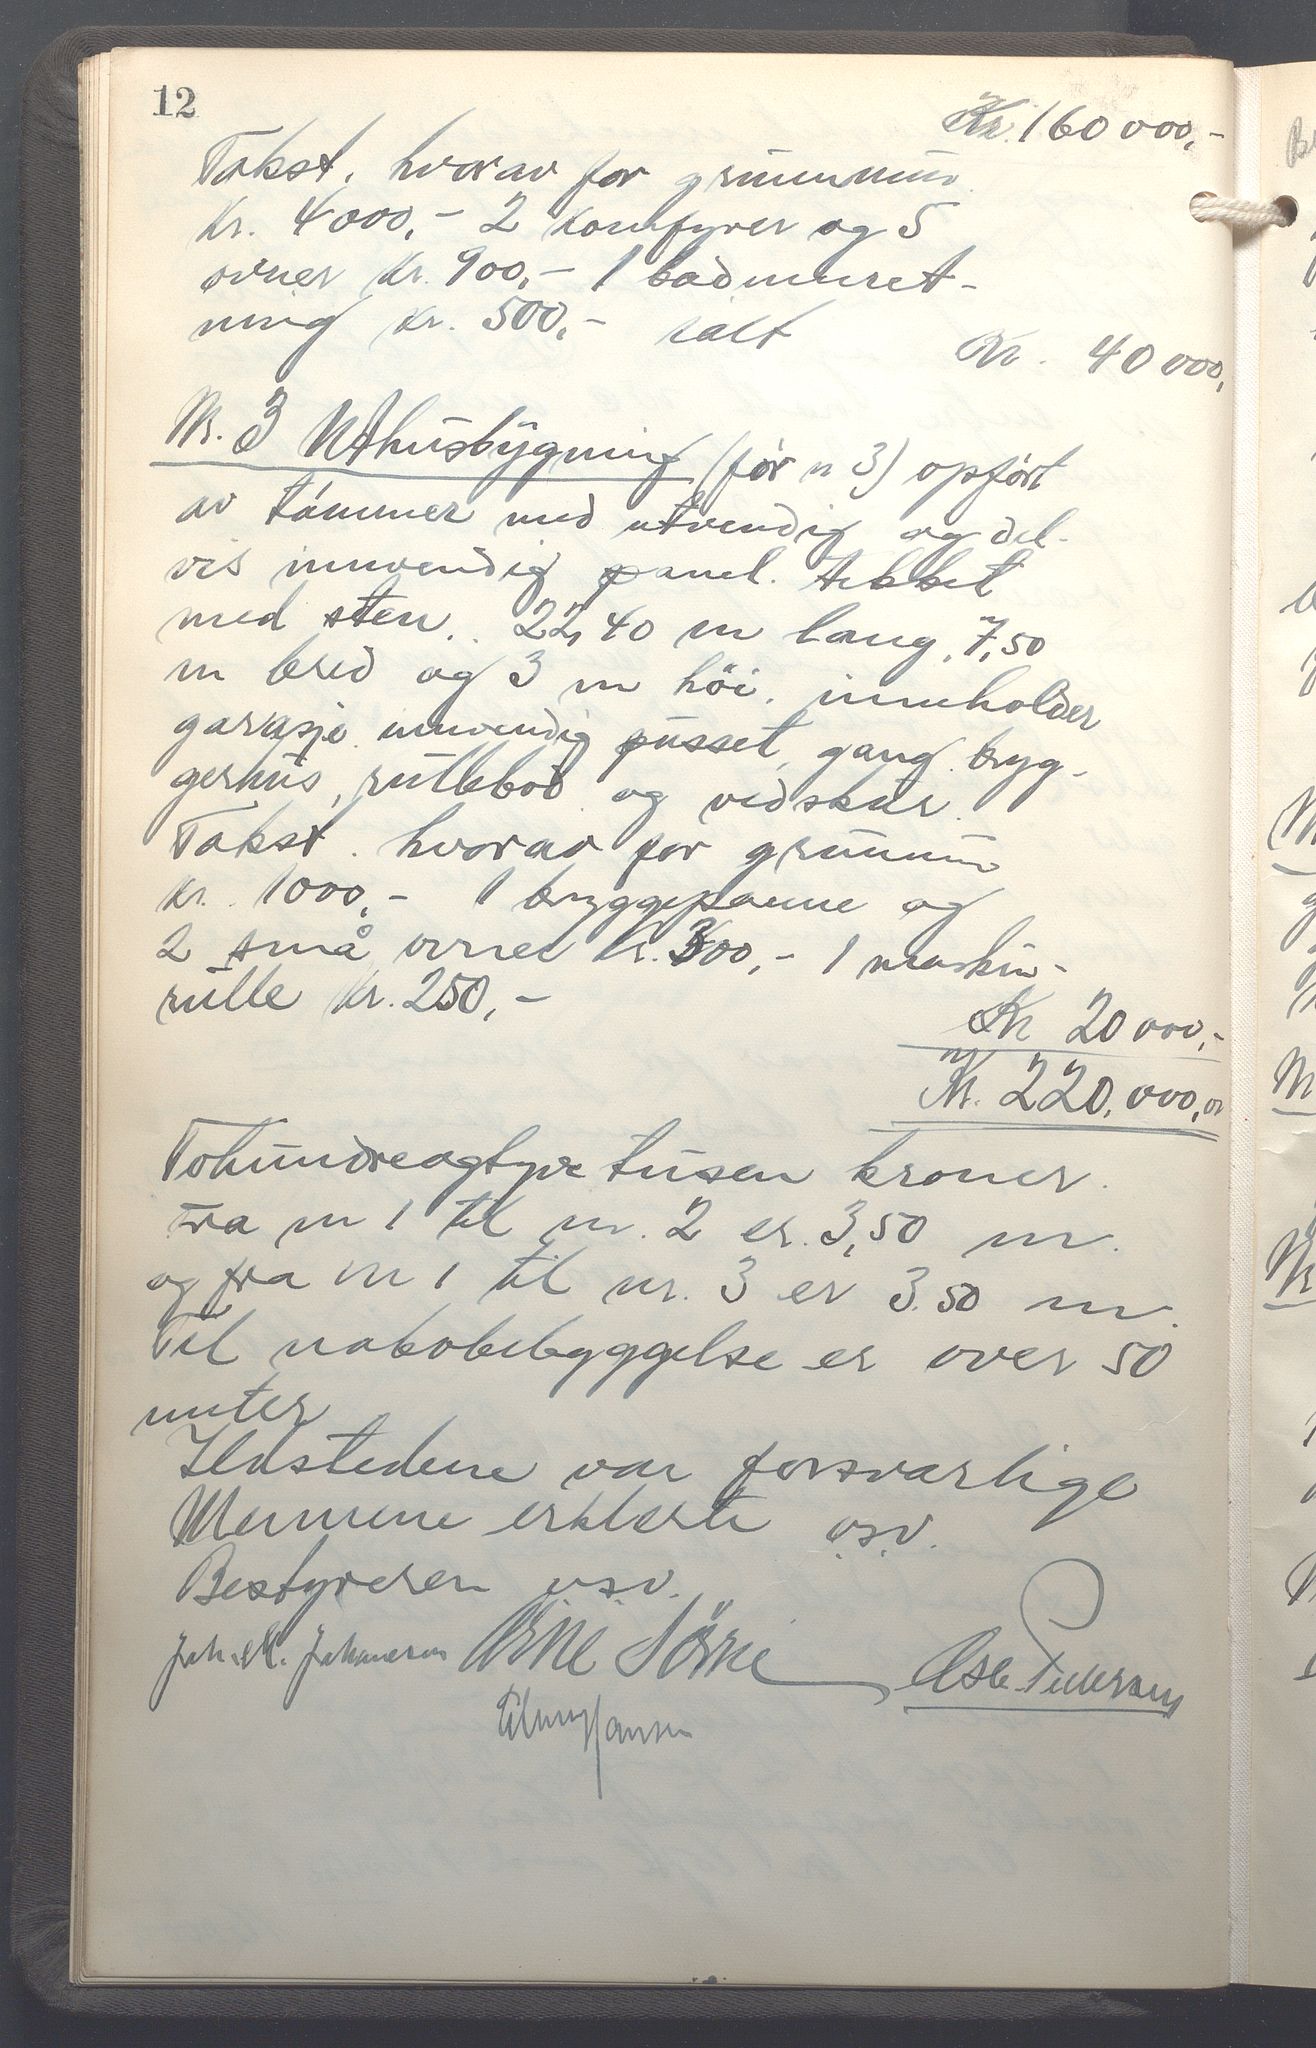 12
Kr. 160 000,-
Takst. hvorav for grunnmur
Kr. 4000,- 2 komfyrer og 5
ovner Kr. 900,- 1 badinnret-
ning Kr. 500,- ialt
Kr. 40 000,
Nr. 3 Uthusbygning (før n 3) opført
av tömmer med utvendig og del-
vis innvendig panel. tekket
med sten. 22,40 m lang, 7,50
m bred og 3 m höi. inneholder
garasje innvendig pusset, gang. bryg-
gerhus, rullebod og vedskur.
Takst. hvorav for grunnmur
Kr. 1000,- 1 bryggepanne og
2 små ovner Kr. 300,- 1 maskin-
rulle Kr. 250,-
Kr 20 000,-
Kr. 220.000,00
Tohundreogtyve tusen kroner.
Fra nr 1 til nr. 2 er 3,50 m.
og fra nr 1 til nr. 3 er 3.50 m.
Til nabobebyggelse er over 50
meter
Ildstedene var forsvarlige
Mennene erklærte o.s.v.
Bestyreren o.s.v.
Joh. M. Johannesen Arne Sörne Osc. Pedersen
Hansen